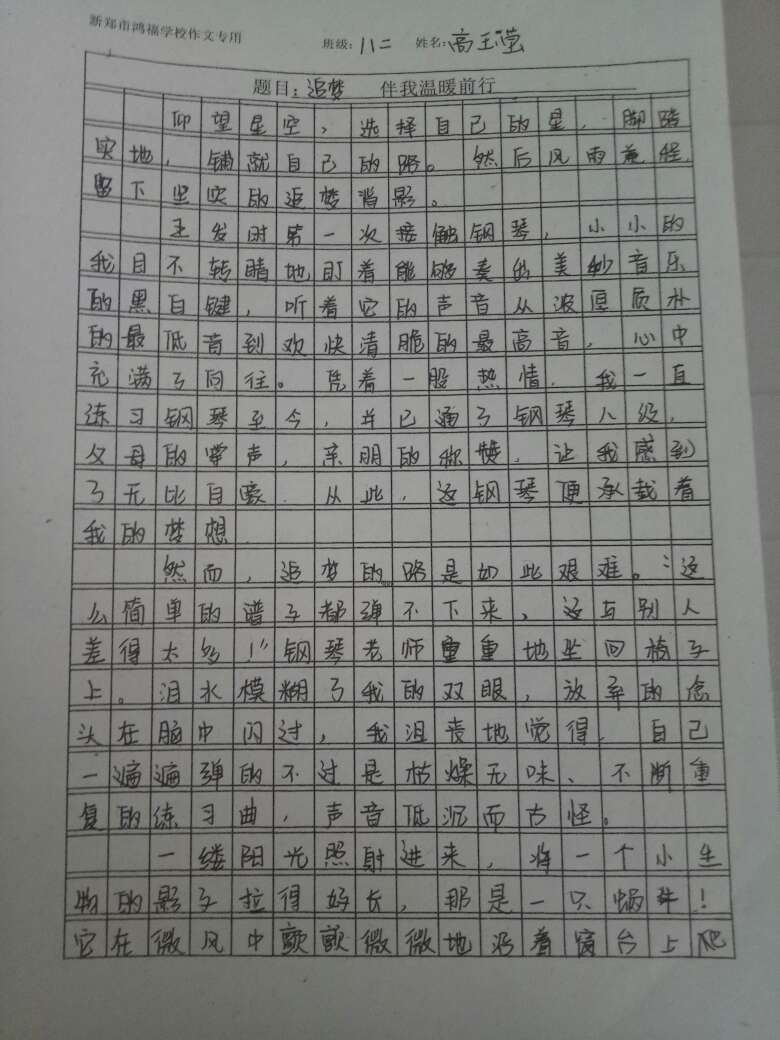 新郑市鸿福学校作文专用
班级：八二 姓名：高玉莹
题目：追梦 伴我温暖前行
仰望星空，选择自己的星，脚踏
实地，铺就自己的路。然后风雨兼程，
留下坚实的追梦背影。
五岁时第一次接触钢琴，小小的
我目不转睛地盯着能够奏出美妙音乐
的黑白键，听着它的声音从浓厚质朴
的最低音到欢快清脆的最高音，心中
充满了向往。凭着一股热情，我一直
练习钢琴至今，并已通了钢琴八级，
父母的掌声，亲朋的称赞，让我感到
了无比自豪．从此，这钢琴便承载着
我的梦想．
然而，追梦的路是如此艰难。“这
么简单的谱子都弹不下来，这与别人
差得太多！”钢琴老师重重地坐回椅子
上。泪水模糊了我的双眼，放弃的念
头在脑中闪过，我沮丧地觉得，自己
一遍遍弹的不过是枯燥无味、不断重
复的练习曲，声音低沉而古怪。
一缕阳光照射进来，将一个小生
物的影子拉得好长，那是一只蜗牛！
它在微风中颤颤微微地沿着窗台上爬